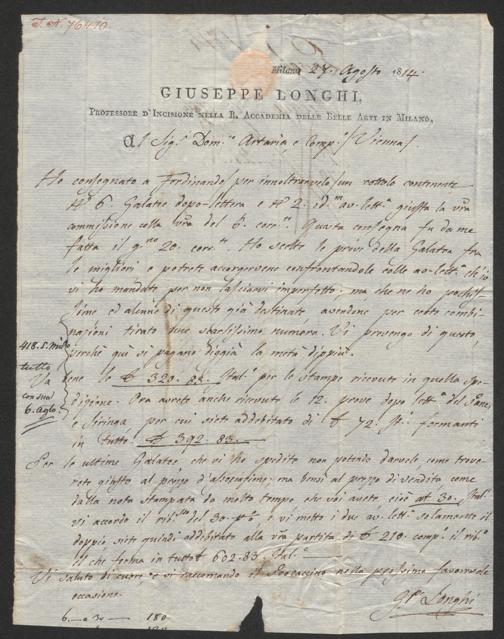 I. N. 76410
Milano 27. Agosto 1814.
GIUSEPPE LONGHI,
PROFESSORE D'INCISIONE NELLA R. ACCADEMIA DELLE BELLE ARTI IN MILANO,
Al Sig.r Dom.co Artaria e Comp.i Vienna.
Ho consegnato a Ferdinando per innoltrarvelo un rottolo contenente
N.o 6. Galatee dopo-lettera e N.o 2. id.m av. lett.a giusta la vra
commissione colla vra del 6. corr.te Questa consegna fu da me
fatta il g.no 20. corr.te Ho scelto le prove della Galatea fra
le migliori e potrete accorgervene confrontandole colle av-lett.a ch'io
vi ho mandate per non lasciarvi imperfetto; ma che ne ho pochis-
sime ed alcune di queste già destinate avendone per certe combi-
nazioni tirato uno scarsissimo numero. Vi prevengo di questo,
perchè quì si pagano diggià la metà dippiù.
bene le 320. 83. Ital.e per le stampe ricevute in quella spe-
dizione. Ora avete anche ricevute le 12. prove dopo lett.a del Pane,
e Siringa, per cui siete addebitato di 72. It. formanti
in tutto 392. 83.
418. S.
tutto
Va
con sua
6. Ag.to
Per le ultime Galatee, che vi ho spedito non potendo darvele come trove-
rete giusto al prezzo d'associazione; ma bensì al prezzo di vendita come
dalla nota stampata da molto tempo che voi avete cioè a 30. Ital.e
vi accordo il rib.so del 30. p%, e vi metto i due av. lett.a solamente il
doppio siete quindi addebitato alla vra partita di 210. comp. il rib.o
il che forma in tutto 602.83 Ital.e
Vi saluto di cuore e vi raccomando il Procaccino nella prossima favorevole
occasione.
G.e Longhi
6. a 30 — 180